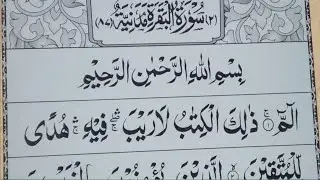 (٢) سُوْرَةُ الْبَقَرَةِ مَدَنِيَّةٌ (٨٧)
بِسْمِ اللّٰهِ الرَّحْمٰنِ الرَّحِيْمِ
الٓمّٓ ۚ ذٰلِكَ الْكِتٰبُ لَا رَيْبَ ۛ فِيْهِ ۛ هُدًى
لِّلْمُتَّقِيْنَ ۙ الَّذِيْنَ